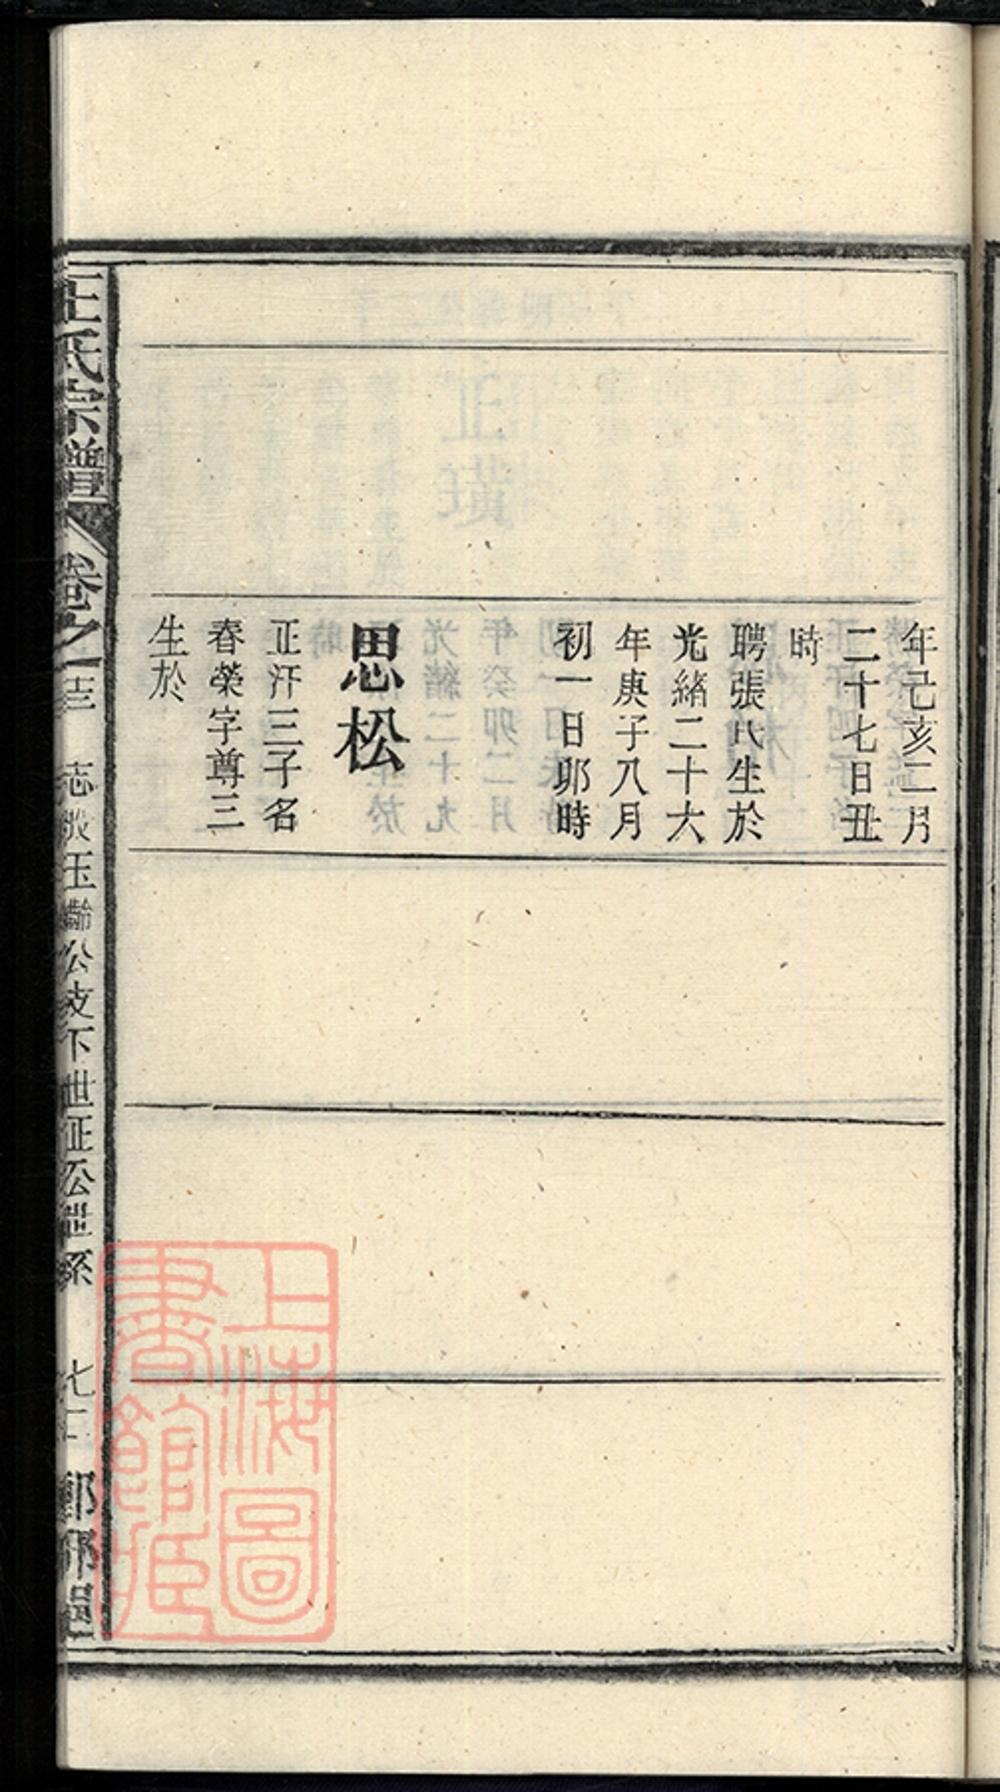 年己亥二月
二十七日丑
時
聘張氏生於
光緒二十六
年庚子八月
初一日卯時
思松
正汗三子名
春榮字尊三
生於
王氏宗譜
卷之
玉
公支下世
公世系
上海圖
書館